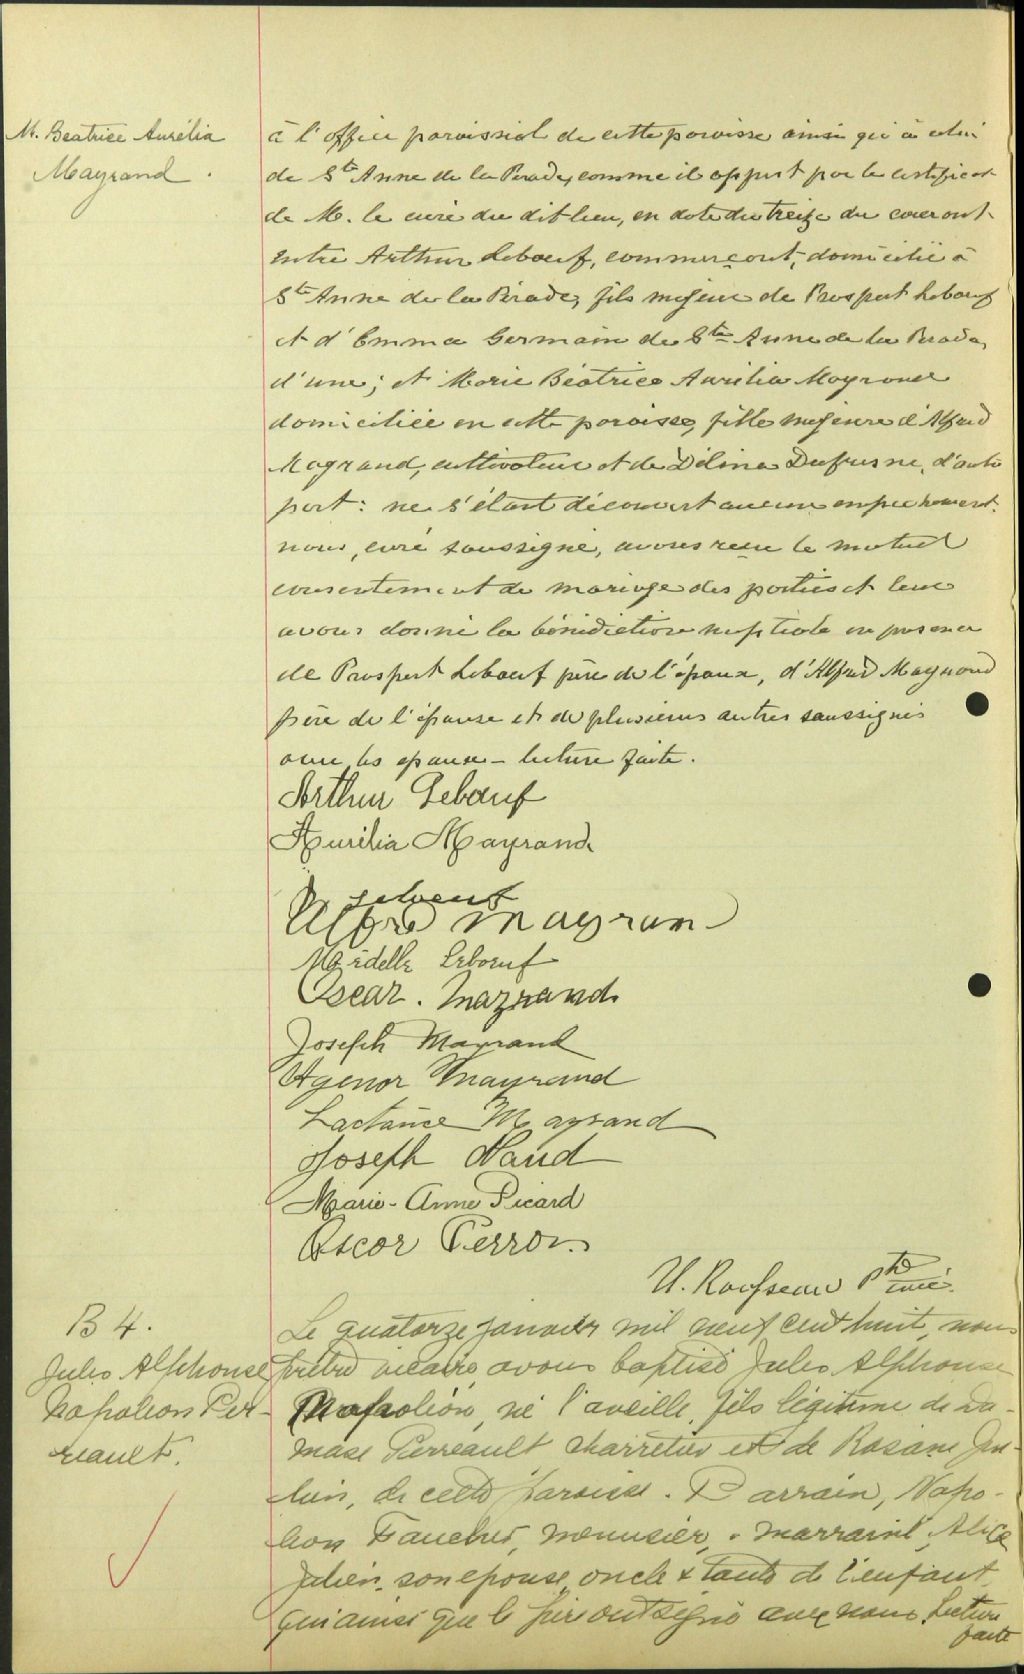 M. Beatrice Aurélia
Mayrand.
à l'office paroissial de cette paroisse ainsi qu'à celui
de Ste Anne de la Perade, comme il appert par le certificat
de M. le curé du dit lieu, en date du treize du courant
entre Arthur Leboeuf, commerçant, domicilié à
Ste Anne de la Pérade, fils majeur de Prospert Leboeuf
et d'Emma Germain de Ste Anne de la Perade,
d'une; et Marie Béatrice Aurélia Mayrand
domiciliée en cette paroisse, fille majeure d'Alfred
Mayrand, cultivateur et de Délina Dufresne, d'autre
part: ne s'étant découvert aucun empêchement
nous, curé soussigné, avons reçu le mutuel
consentement de mariage des parties et leur
avons donné la bénédiction nuptiale en présence
de Prospert Leboeuf père de l'époux, d'Alfred Mayrand
père de l'épouse et de plusieurs autres soussignés
avec les epoux - lecture faite.
Arthur Leboeuf
Aurélia Mayrand
P Leboeuf
Alfred Mayrand
Leboeuf
Oscar. Mayrand.
Joseph Mayrand
Agenor Mayrand
Lactance Mayrand
Joseph Naud
Marie-Anne Picard
Oscar Perron.
U. Rousseau Ptre curé.
B 4.
Jules Alphonse
Napoleon Per-
reault.
Le quatorze janvier mil neuf cent huit, nous
prêtre vicaire, avons baptisé Jules Alphonse
Napoléon, né l'aveille, fils légitime de Da-
mase Perreault, charretier et de Rosane Ju-
lien, de cette paroisse. Parrain, Napo-
leon Faucher, menuisier, marraine, Alice
Julien, son epouse, oncle & tante de l'enfant,
qui ainsi que le père ont signé avec nous. Lecture
faite